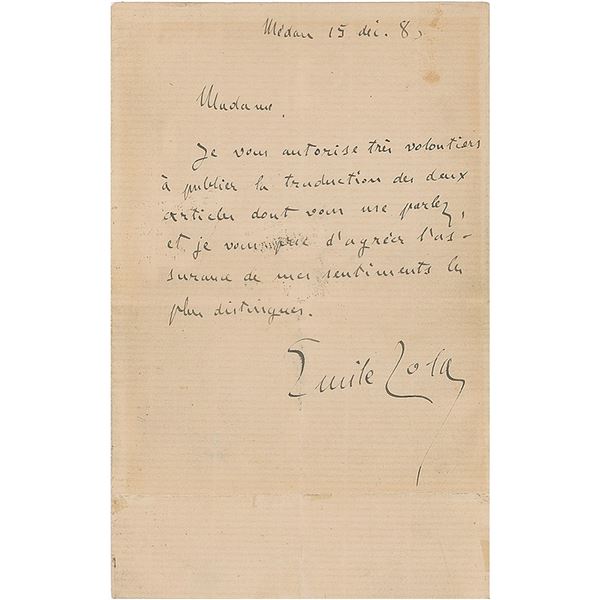 Médan 15 déc. 8
Madame,
Je vous autorise très volontiers
à publier la traduction des deux
articles dont vous me parlez,
et je vous prie d'agréer l'as-
surance de mes sentiments les
plus distingués.
Emile Zola